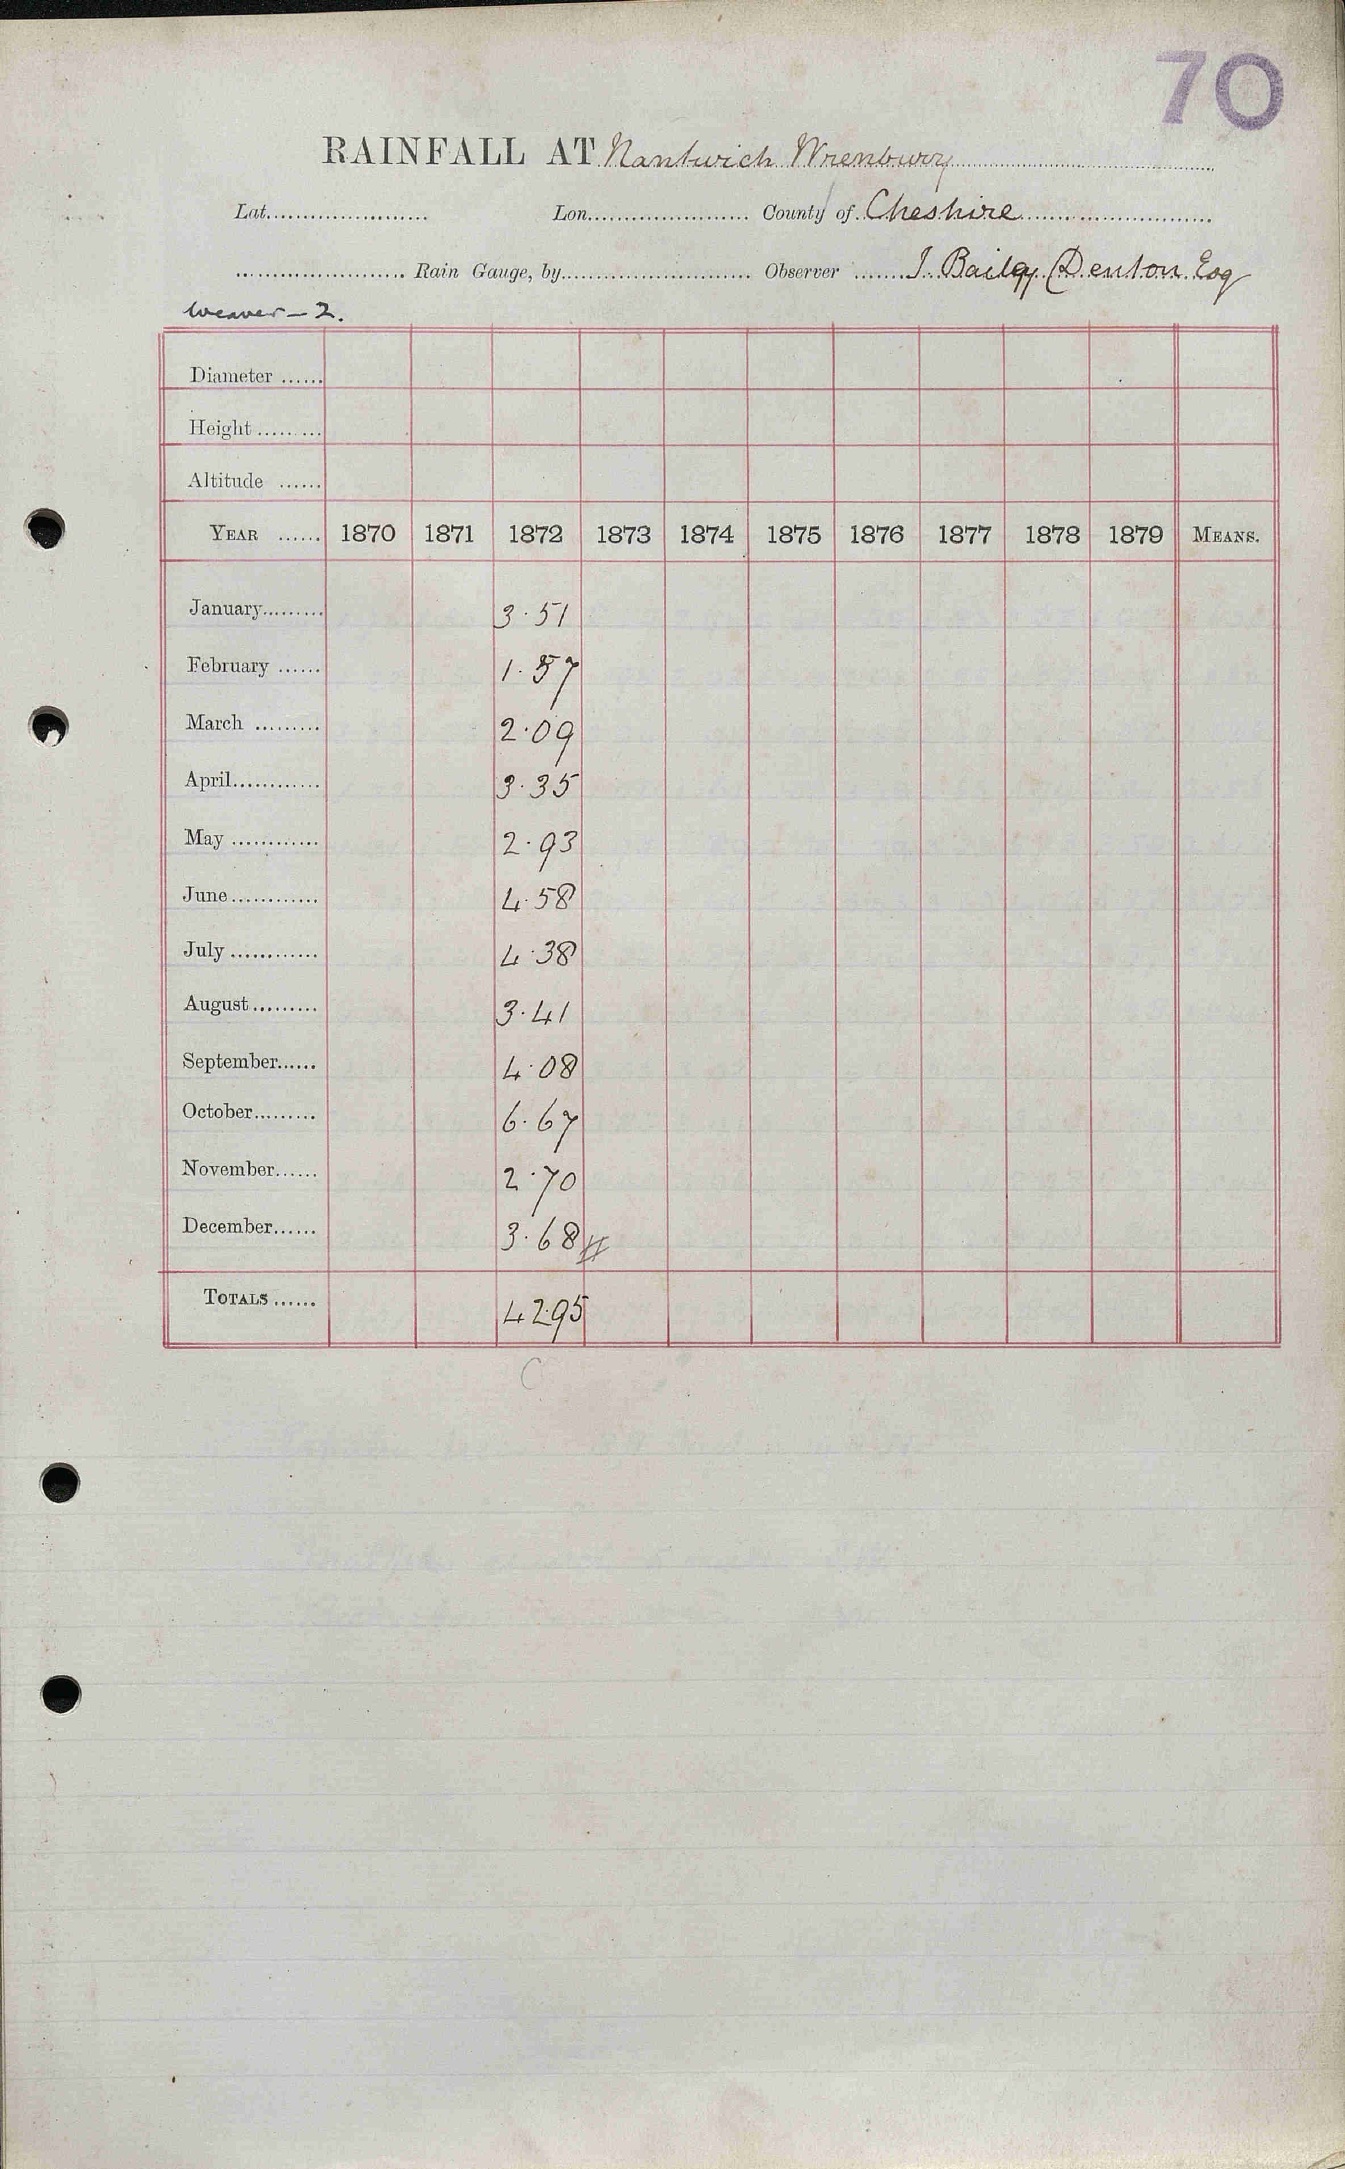 70
RAINFALL AT Nantwich Wrenbury
Lat...................... Lon...................... County of Cheshire
...................... Rain Gauge, by...................... Observer ....... J. Bailey Denton Esq
Weaver – 2.
Diameter ......
Height .........
Altitude ......
YEAR ...... 1870 1871 1872 1873 1874 1875 1876 1877 1878 1879 MEANS.
January......... 3.51
February ...... 1.57
March ......... 2.09
April............ 3.35
May ............ 2.93
June............ 4.58
July ............ 4.38
August......... 3.41
September...... 4.08
October......... 6.67
November...... 2.70
December...... 3.68 #
TOTALS ...... 42.95
C